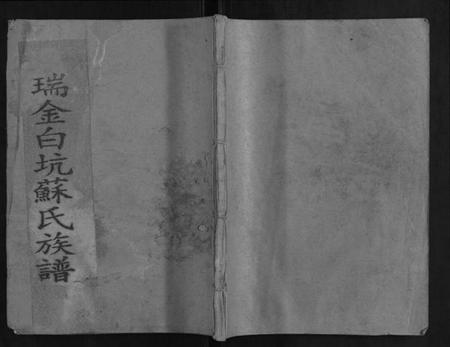 瑞金白坑蘇氏族譜